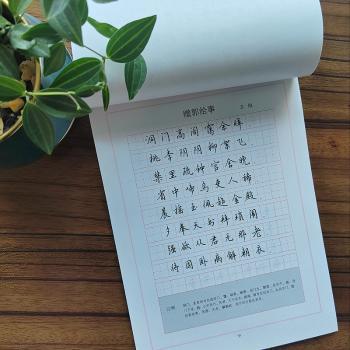 赠郭给事 王维
洞门高阁霭余晖
桃李阴阴柳絮飞
禁里疏钟官舍晚
省中啼鸟吏人稀
晨摇玉佩趋金殿
夕奉天书拜琐闱
强欲从君无那老
将因卧病解朝衣
注释